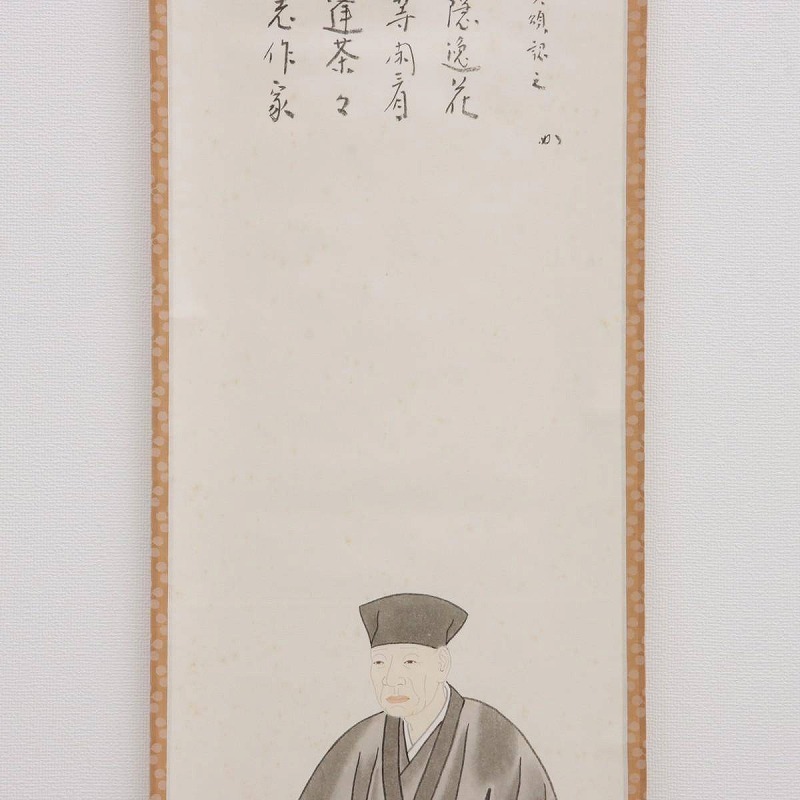 頌認之
隠逸花
等閑看
逢茶々
老作家